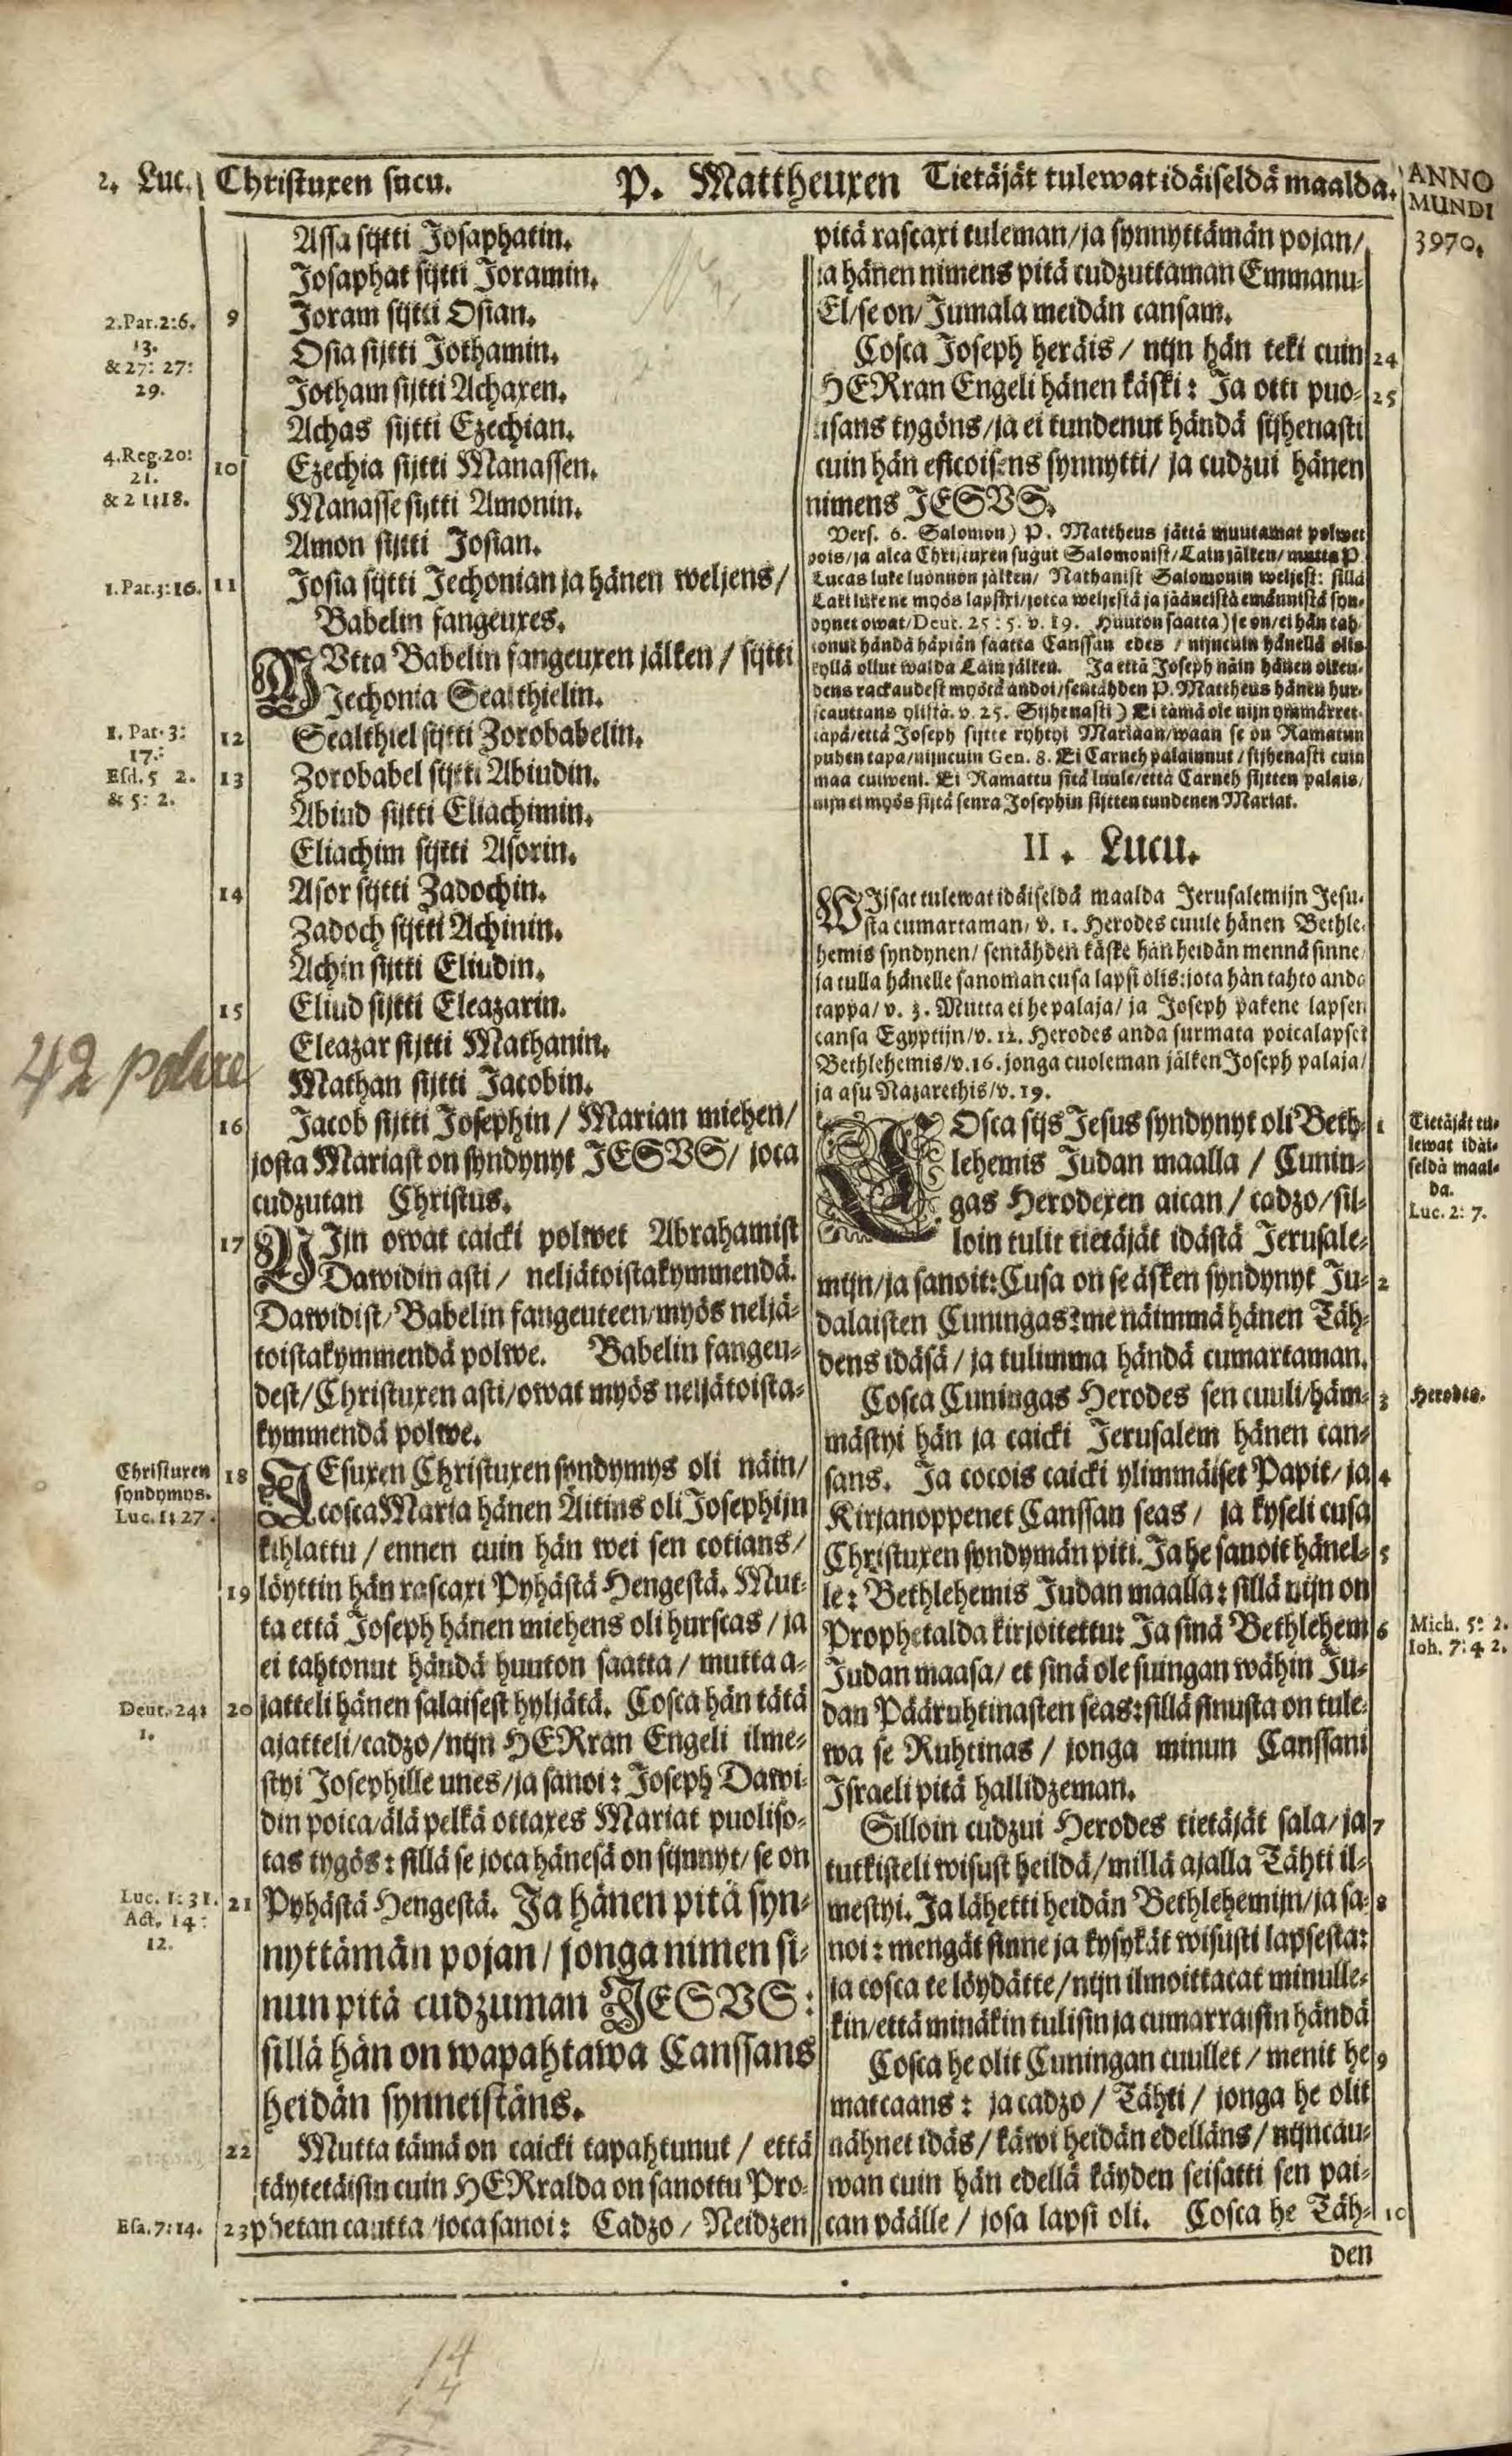 2. Luc. Christuxen sucu. P. Mattheuxen Tietäjät tulewat idäiseldä maalda. ANNO
MUNDI
3970.
Assa sijtti Josaphatin.
Josaphat sijtti Joramin.
2.Par.2:6. 9 Joram sijtti Osian.
13.
& 27: 27:
29.
Osia sijtti Jothamin.
Jotham sijtti Achaxen.
Achas sijtti Ezechian.
4.Reg.20:
21.
& 21:18.
10 Ezechia sijtti Manassen.
Manasse sijtti Amonin.
Amon sijtti Josian.
1.Par.3:16. 11 Josia sijtti Jechonian ja hänen weljens/
Babelin fangeuxes.
MUtta Babelin fangeuxen jälken/ sijtti
Jechonia Sealthielin.
1. Par. 3:
17.
12 Sealthiel sijtti Zorobabelin.
Esd. 5 2.
& 5: 2.
13 Zorobabel sijtti Abiudin.
Abiud sijtti Eliachimin.
Eliachim sijtti Asorin.
14 Asor sijtti Zadochin.
Zadoch sijtti Achinin.
Achin sijtti Eliudin.
15 Eliud sijtti Eleazarin.
Eleazar sijtti Mathanin.
42 polwe
Mathan sijtti Jacobin.
16 Jacob sijtti Josephin/ Marian miehen/
josta Mariast on syndynyt JESVS/ joca
cudzutan Christus.
17 NIjn owat caicki polwet Abrahamist
Dawidin asti/ neljätoistakymmendä.
Dawidist/ Babelin fangeuteen/ myös neljä-
toistakymmendä polwe. Babelin fangeu-
dest/ Christuxen asti/ owat myös neljätoista-
kymmendä polwe.
Christuxen
syndymys.
Luc. 1: 27.
18 JEsuxen Christuxen syndymys oli näin/
cosca Maria hänen Äitins oli Josephijn
kihlattu/ ennen cuin hän wei sen cotians/
19 löyttin hän rascaxi Pyhästä Hengestä. Mut-
ta että Joseph hänen miehens oli hurscas/ ja
ei tahtonut händä huuton saatta/ mutta a-
Deut. 24:
1.
20 jatteli hänen salaisest hyljätä. Cosca hän tätä
ajatteli/ cadzo/ nijn HERran Engeli ilme-
styi Josephille unes/ ja sanoi: Joseph Dawi-
din poica/ älä pelkä ottaxes Mariat puoliso-
tas tygös: sillä se joca hänesä on sijnnyt/ se on
Luc. 1: 31.
Act. 14:
12.
21 Pyhästä Hengestä. Ja hänen pitä syn-
nyttämän pojan/ jonga nimen si-
nun pitä cudzuman JESVS:
sillä hän on wapahtawa Canssans
heidän synneistäns.
22 Mutta tämä on caicki tapahtunut/ että
täytetäisin cuin HERralda on sanottu Pro-
Esa. 7: 14. 23 phetan cautta/ joca sanoi: Cadzo/ Neidzen
pitä rascaxi tuleman/ ja synnyttämän pojan/
ja hänen nimens pitä cudzuttaman Emmanu-
El/ se on/ Jumala meidän cansam.
Cosca Joseph heräis/ nijn hän teki cuin 24
HERran Engeli hänen käski: Ja otti puo- 25
lisans tygöns/ ja ei tundenut händä sijhenasti
cuin hän esicoisens synnytti/ ja cudzui hänen
nimens JESVS.
Vers. 6. Salomon) P. Mattheus jättä muutamat polwet
pois/ ja alca Christuxen sugut Salomonist/ Lain jälken/ mutta P.
Lucas luke luonnon jälken/ Nathanist Salomonin weljest: sillä
Laki lukene myös lapsixi/ jotca weljestä ja jääneistä emännistä syn-
dynet owat/ Deut. 25: 5. v. 19. Huuton saatta) se on/ ei hän tah-
tonut händä häpiän saatta Canssan edes/ nijncuin hänellä olis
kyllä ollut walda Lain jälken. Ja että Joseph näin hänen oikeu-
dens rackaudest myötä andoi/ sentähden P. Mattheus hänen hur-
scauttans ylistä. v. 25. Sijhenasti) Ei tämä ole nijn ymmärret-
täpä/ että Joseph sijtte ryhtyi Mariaan/ waan se on Ramatun
puhen tapa/ nijncuin Gen. 8. Ei Carneh palainnut/ sijhenasti cuin
maa cuiweni. Ei Ramattu sitä luule/ että Carneh sijtten palais/
nijn ei myös sijtä seura Josephin sijtten tundenen Mariat.
II. Lucu.
WIjsat tulewat idäiseldä maalda Jerusalemijn Jesu-
sta cumartaman/ v. 1. Herodes cuule hänen Bethle-
hemis syndynen/ sentähden käske hän heidän mennä sinne/
ja tulla hänelle sanoman cusa lapsi olis: jota hän tahto anda
tappa/ v. 3. Mutta ei he palaja/ ja Joseph pakene lapsen
cansa Egyptijn/ v. 12. Herodes anda surmata poicalapset
Bethlehemis/ v. 16. jonga cuoleman jälken Joseph palaja/
ja asu Nazarethis/ v. 19.
COsca sijs Jesus syndynyt oli Beth- 1
lehemis Judan maalla/ Cunin-
gas Herodexen aican/ cadzo/ sil-
loin tulit tietäjät idästä Jerusale-
Tietäjät tu-
lewat idäi-
seldä maal-
da.
Luc. 2: 7.
mijn/ ja sanoit: Cusa on se äsken syndynyt Ju- 2
dalaisten Cuningas? me näimmä hänen Täh-
dens idäsä/ ja tulimma händä cumartaman.
Cosca Cuningas Herodes sen cuuli/ häm- 3 Herodes.
mästyi hän ja caicki Jerusalem hänen can-
sans. Ja cocois caicki ylimmäiset Papit/ ja 4
Kirjanoppenet Canssan seas/ ja kyseli cusa
Christuxen syndymän piti. Ja he sanoit hänel- 5
le: Bethlehemis Judan maalla: sillä nijn on
Prophetalda kirjoitettu: Ja sinä Bethlehem 6 Mich. 5: 2.
Ioh. 7: 42.
Judan maasa/ et sinä ole suingan wähin Ju-
dan Pääruhtinasten seas: sillä sinusta on tule-
wa se Ruhtinas/ jonga minun Canssani
Israeli pitä hallidzeman.
Silloin cudzui Herodes tietäjät sala/ ja 7
tutkisteli wisust heildä/ millä ajalla Tähti il-
mestyi. Ja lähetti heidän Bethlehemijn/ ja sa- 8
noi: mengät sinne ja kysykät wisusti lapsesta:
ja cosca te löydätte/ nijn ilmoittacat minulle-
kin/ että minäkin tulisin ja cumarraisin händä
Cosca he olit Cuningan cuullet/ menit he 9
matcaans: ja cadzo/ Tähti/ jonga he olit
nähnet idäs/ käwi heidän edelläns/ nijncau-
wan cuin hän edellä käyden seisatti sen pai-
can päälle/ josa lapsi oli. Cosca he Täh- 10
den
14
14